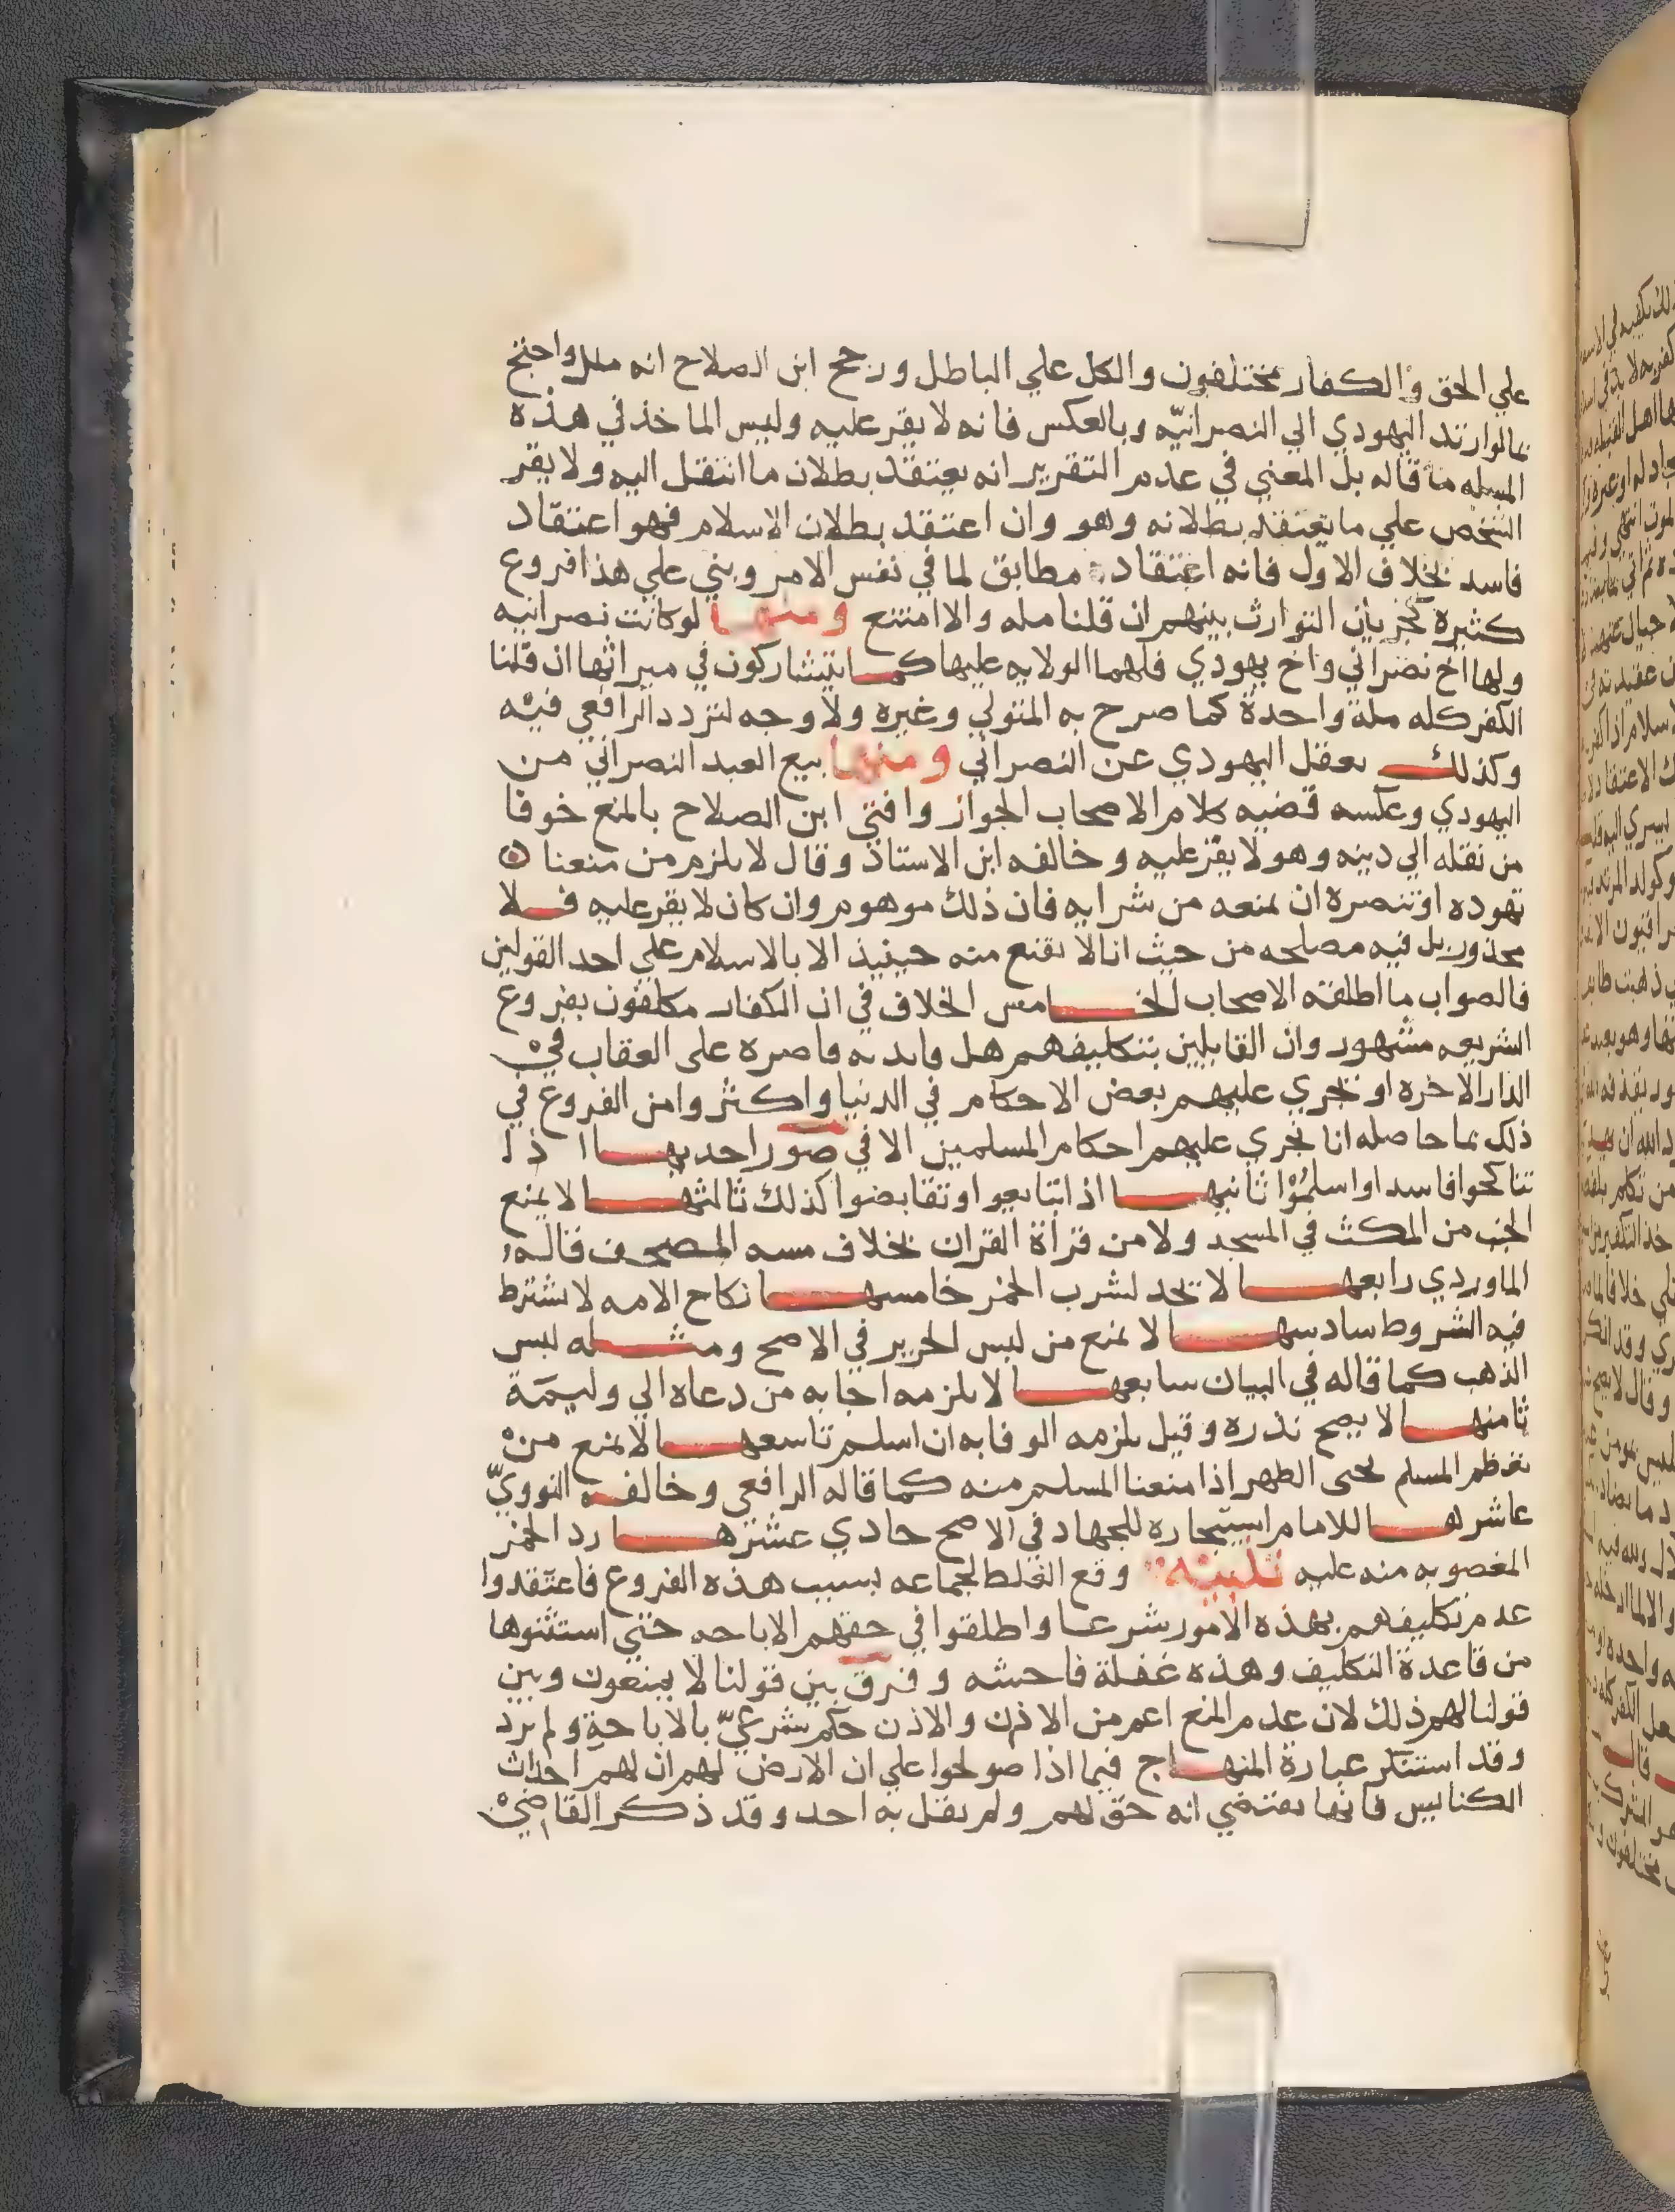 علي الحق والكفار مختلفون والكل علي الباطل ورجح ابن الصلاح انه ملل واحتج
بما لو ارتد اليهودي الي النصرانيّه وبالعكس فانه لا يقر عليه وليس الماخذ في هذه
المسله ما قاله بل المعني في عدم التقرير انه يعتقد بطلان ما انتقل اليه ولا يقر
الشخص علي ما يعتقد بطلانه وهو وان اعتقد بطلان الاسلام فهو اعتقاد
فاسد بخلاف الاول فانه اعتقاد مطابق لما في نفس الامر وبني علي هذا فروع
كثيرة كجريان التوارث بينهم ان قلنا مله والا امتنع ومنها لو كانت نصرانيه
ولها اخ نصراني واخ يهودي فلهما الولايه عليها كما يتشاركون في ميراثها ان قلنا
الكفر كله ملة واحدة كما صرح به المتولي وغيره ولا وجه لتردد الرافعي فيه
وكذلك يعقل اليهودي عن النصراني ومنها بيع العبد النصراني من
اليهودي وعكسه قضيه كلام الاصحاب الجواز وافتي ابن الصلاح بالمنع خوفا
من نقله الي دينه وهو لا يقر عليه وخالفه ابن الاستاذ وقال لا يلزم من منعنا
تهوده او تنصره ان نمنعه من شرايه فان ذلك موهوم وان كان لا يقر عليه فلا
محذور بل فيه مصلحه من حيث انا لا نقنع منه حينيذ الا بالاسلام علي احد القولين
فالصواب ما اطلقه الاصحاب الخامس الخلاف في ان الكفار مكلفون بفروع
الشريعه مشهور وان القايلين بتكليفهم هل فايدته قاصره على العقاب في
الدار الاخره او نجري عليهم بعض الاحكام في الدنيا واكثروا من الفروع في
ذلك بما حاصله انا نجري عليهم احكام المسلمين الا في صور احديها اذا
تناكحوا فاسدا واسلموا ثانيها اذا تبايعوا وتقابضوا كذلك ثالثها لا يمنع
الجنب من المكث في المسجد ولا من قرأة القران بخلاف مسه المصحف قاله
الماوردي رابعها لا تحد لشرب الخمر خامسها نكاح الامه لا تشترط
فيه الشروط سادسها لا نمنع من لبس الحرير في الاصح ومثله لبس
الذهب كما قاله في البيان سابعها لا يلزمه اجابه من دعاه الي وليمة
ثامنها لا يصح نذره وقيل يلزمه الوفا به ان اسلم تاسعها لا نمنع من
تعظيم المسلم بحني الظهر اذا منعنا المسلم منه كما قاله الرافعي وخالفه النوويّ
عاشرها للامام استيجاره للجهاد في الاصح حادي عشرها رد الخمر
المغصوبه منه عليه تنبيه وقع الغلط لجماعه بسبب هذه الفروع فاعتقدوا
عدم تكليفهم بهذه الامور شرعا واطلقوا في حقهم الاباحه حتي استثنوها
من قاعدة التكليف وهذه غفلة فاحشه وفرق بين قولنا لا يمنعون وبين
قولنا لهم ذلك لان عدم المنع اعم من الاذن والاذن حكم شرعيّ بالاباحة ولم يرد
وقد استنكر عبارة المنهاج فيما اذا صولحوا علي ان الارض لهم ان لهم احداث
الكنايس فانها يقتضي انه حق لهم ولم يقل به احد وقد ذكر القاضي